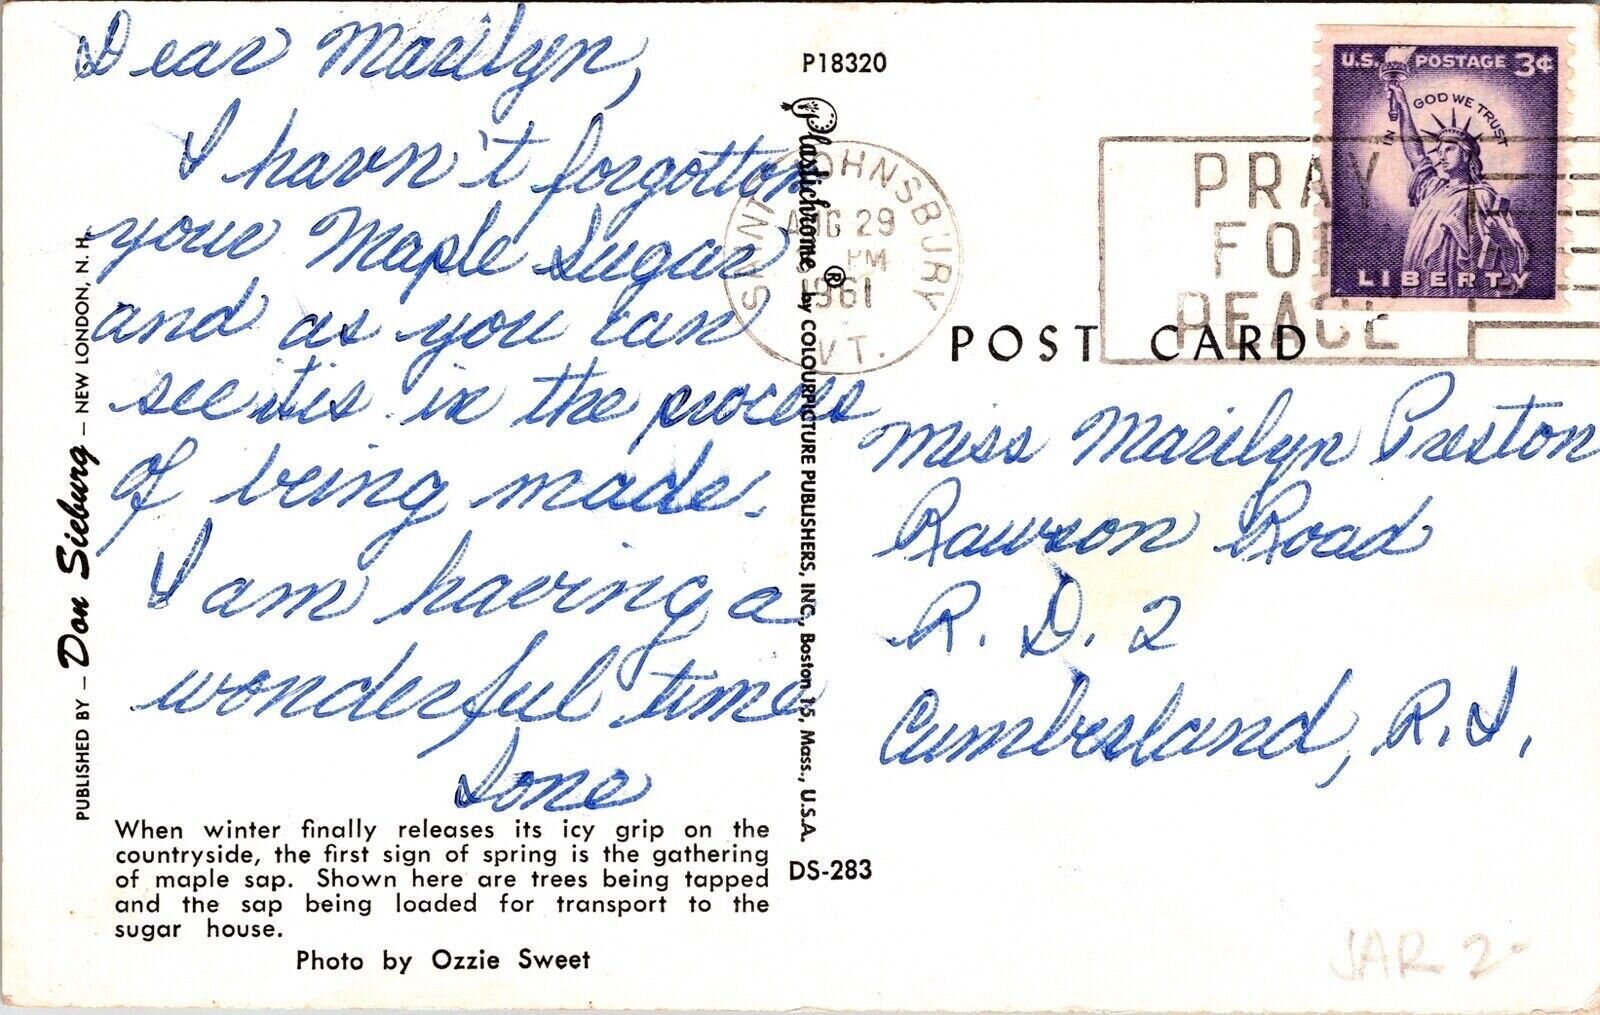 Dear Marilyn,
I havn't forgotton
your Maple Sugar
and as you can
see itis in the process
of being made.
I am having a
wonderful time
When winter finally releases its icy grip on the
countryside, the first sign of spring is the gathering
of maple sap. Shown here are trees being tapped
and the sap being loaded for transport to the
sugar house.
Photo by Ozzie Sweet
PUBLISHED BY – Don Sieburg – NEW LONDON, N. H.
P18320
Plastichrome ® by COLOURPICTURE PUBLISHERS, INC., Boston 15, Mass., U.S.A.
DS-283
SAINT JOHNSBURY
AUG 29
PM
1961
VT.
PRAY
FOR
PEACE
U.S. POSTAGE 3¢
IN GOD WE TRUST
LIBERTY
POST CARD
Miss Marilyn Preston
Rawson Road
R. D. 2
Cumberland, R.I.
JAR 2-